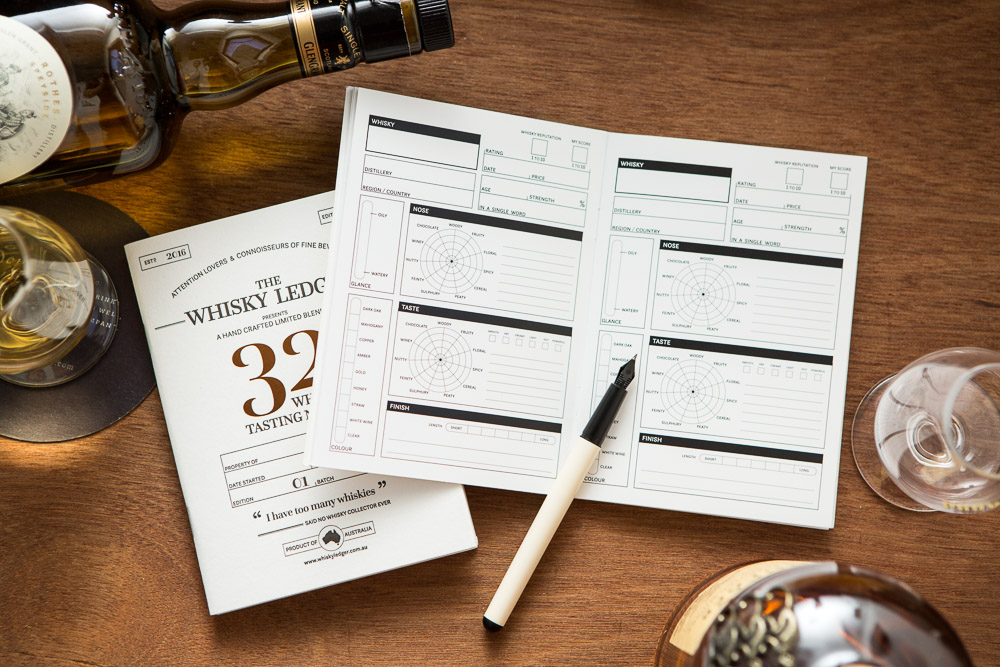 SINGLE
GLEN
ROTHES
SPEYSIDE
ESTD 2016
ATTENTION LOVERS & CONNOISSEURS OF FINE
THE
WHISKY LEDG
PRESENTS
A HAND CRAFTED LIMITED BLEN
32
TASTING
PROPERTY OF
DATE STARTED 01 BATCH
EDITION
“ I have too many whiskies ”
SAID NO WHISKY COLLECTOR EVER
PRODUCT OF AUSTRALIA
www.whiskyledger.com.au
WHISKY
WHISKY REPUTATION
MY SCORE
RATING
1 TO 10
1 TO 10
DISTILLERY
DATE
PRICE
REGION / COUNTRY
AGE
STRENGTH %
IN A SINGLE WORD
OILY
WATERY
GLANCE
NOSE
WOODY
FRUITY
FLORAL
SPICY
CEREAL
PEATY
SULPHURY
FEINTY
NUTTY
WINEY
CHOCOLATE
DARK OAK
MAHOGANY
COPPER
AMBER
GOLD
HONEY
STRAW
WHITE WINE
CLEAR
COLOUR
TASTE
WOODY
FRUITY
FLORAL
SPICY
CEREAL
PEATY
SULPHURY
FEINTY
NUTTY
WINEY
CHOCOLATE
FINISH
LENGTH SHORT LONG
WHISKY
WHISKY REPUTATION
MY SCORE
RATING
1 TO 10
1 TO 10
DISTILLERY
DATE
PRICE
REGION / COUNTRY
AGE
STRENGTH %
IN A SINGLE WORD
OILY
WATERY
GLANCE
NOSE
WOODY
FRUITY
FLORAL
SPICY
CEREAL
PEATY
SULPHURY
FEINTY
NUTTY
WINEY
CHOCOLATE
DARK OAK
WHITE WINE
CLEAR
COLOUR
TASTE
WOODY
FRUITY
FLORAL
SPICY
CEREAL
PEATY
SULPHURY
FEINTY
NUTTY
WINEY
CHOCOLATE
FINISH
LENGTH SHORT LONG